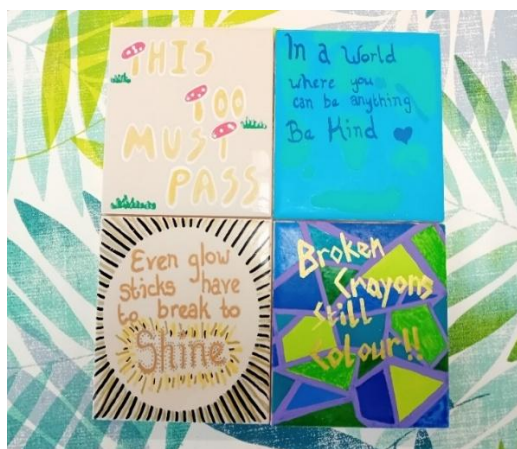 THIS
TOO
MUST
PASS
In a World
where you
can be anything
Be Kind
Even glow
sticks have
to break to
Shine
Broken
Crayons
Still
Colour!!